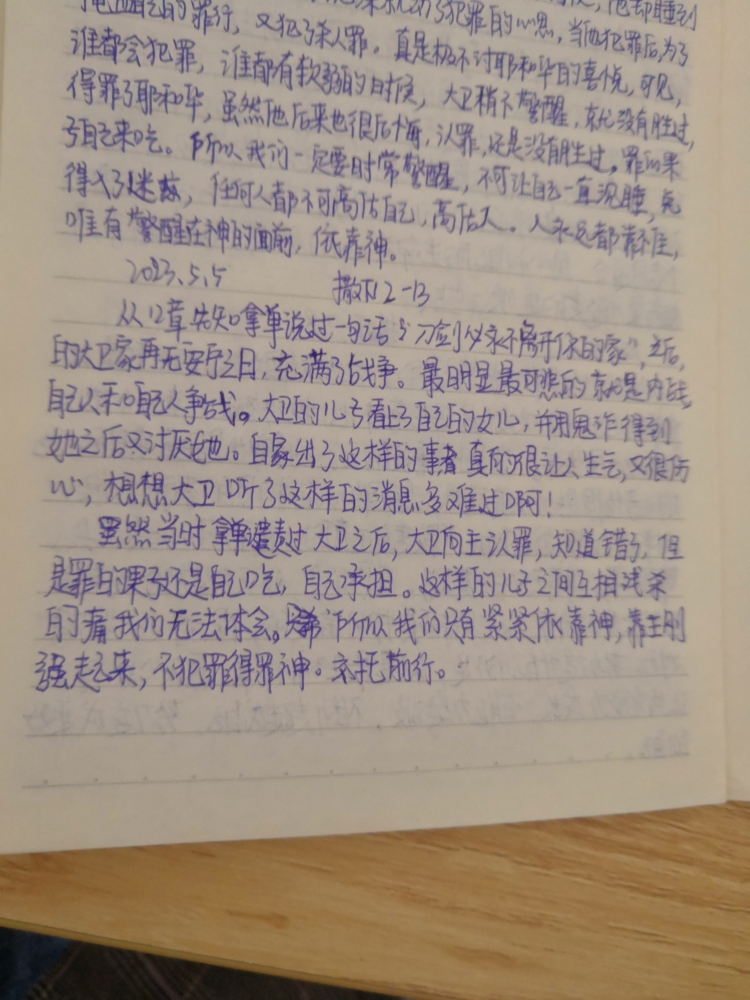 犯罪的心思,当他犯罪后,为了
的罪行,又犯了杀人罪。真是极不讨耶和华的喜悦,可见,
谁都会犯罪,谁都有软弱的时候,大卫稍不警醒,就没有胜过,
得罪了耶和华,虽然他后来也很后悔,认罪,还是没有胜过。罪的果
自己来吃。所以我们一定要时常警醒,不可让自己一直沉睡,免
得入了迷惑,任何人都不可高估自己,高估人。人永远都靠不住,
唯有警醒在神的面前,依靠神。
2023.5.5 撒下12-13
从12章先知拿单说过一句话:"刀剑必永不离开你的家",之后,
的大卫家再无安宁之日,充满了战争。最明显最可悲的就是内战,
自己人和自己人争战。大卫的儿子看上了自己的女儿,并用鬼诈得到
她之后又讨厌她。自家出了这样的事 真的很让人生气,又很伤
心,想想大卫听了这样的消息多难过啊!
虽然当时拿单谴责过大卫之后,大卫向主认罪,知道错了,但
是罪的果子还是自己吃,自己承担。这样的儿子之间互相残杀
的痛我们无法体会。所以我们只有紧紧依靠神,靠主刚
强起来,不犯罪得罪神。交托前行。